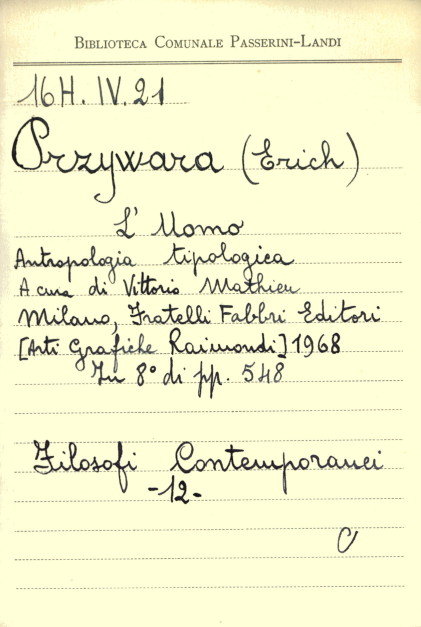 BIBLIOTECA COMUNALE PASSERINI-LANDI
16H. IV. 21
Przywara (Erich)
L' Uomo
Antropologia tipologica
A cura di Vittorio Mathieu
Milano, Fratelli Fabbri Editori
[Arti Grafiche Raimondi] 1968
In 8° di pp. 548
Filosofi Contemporanei
-12-
C